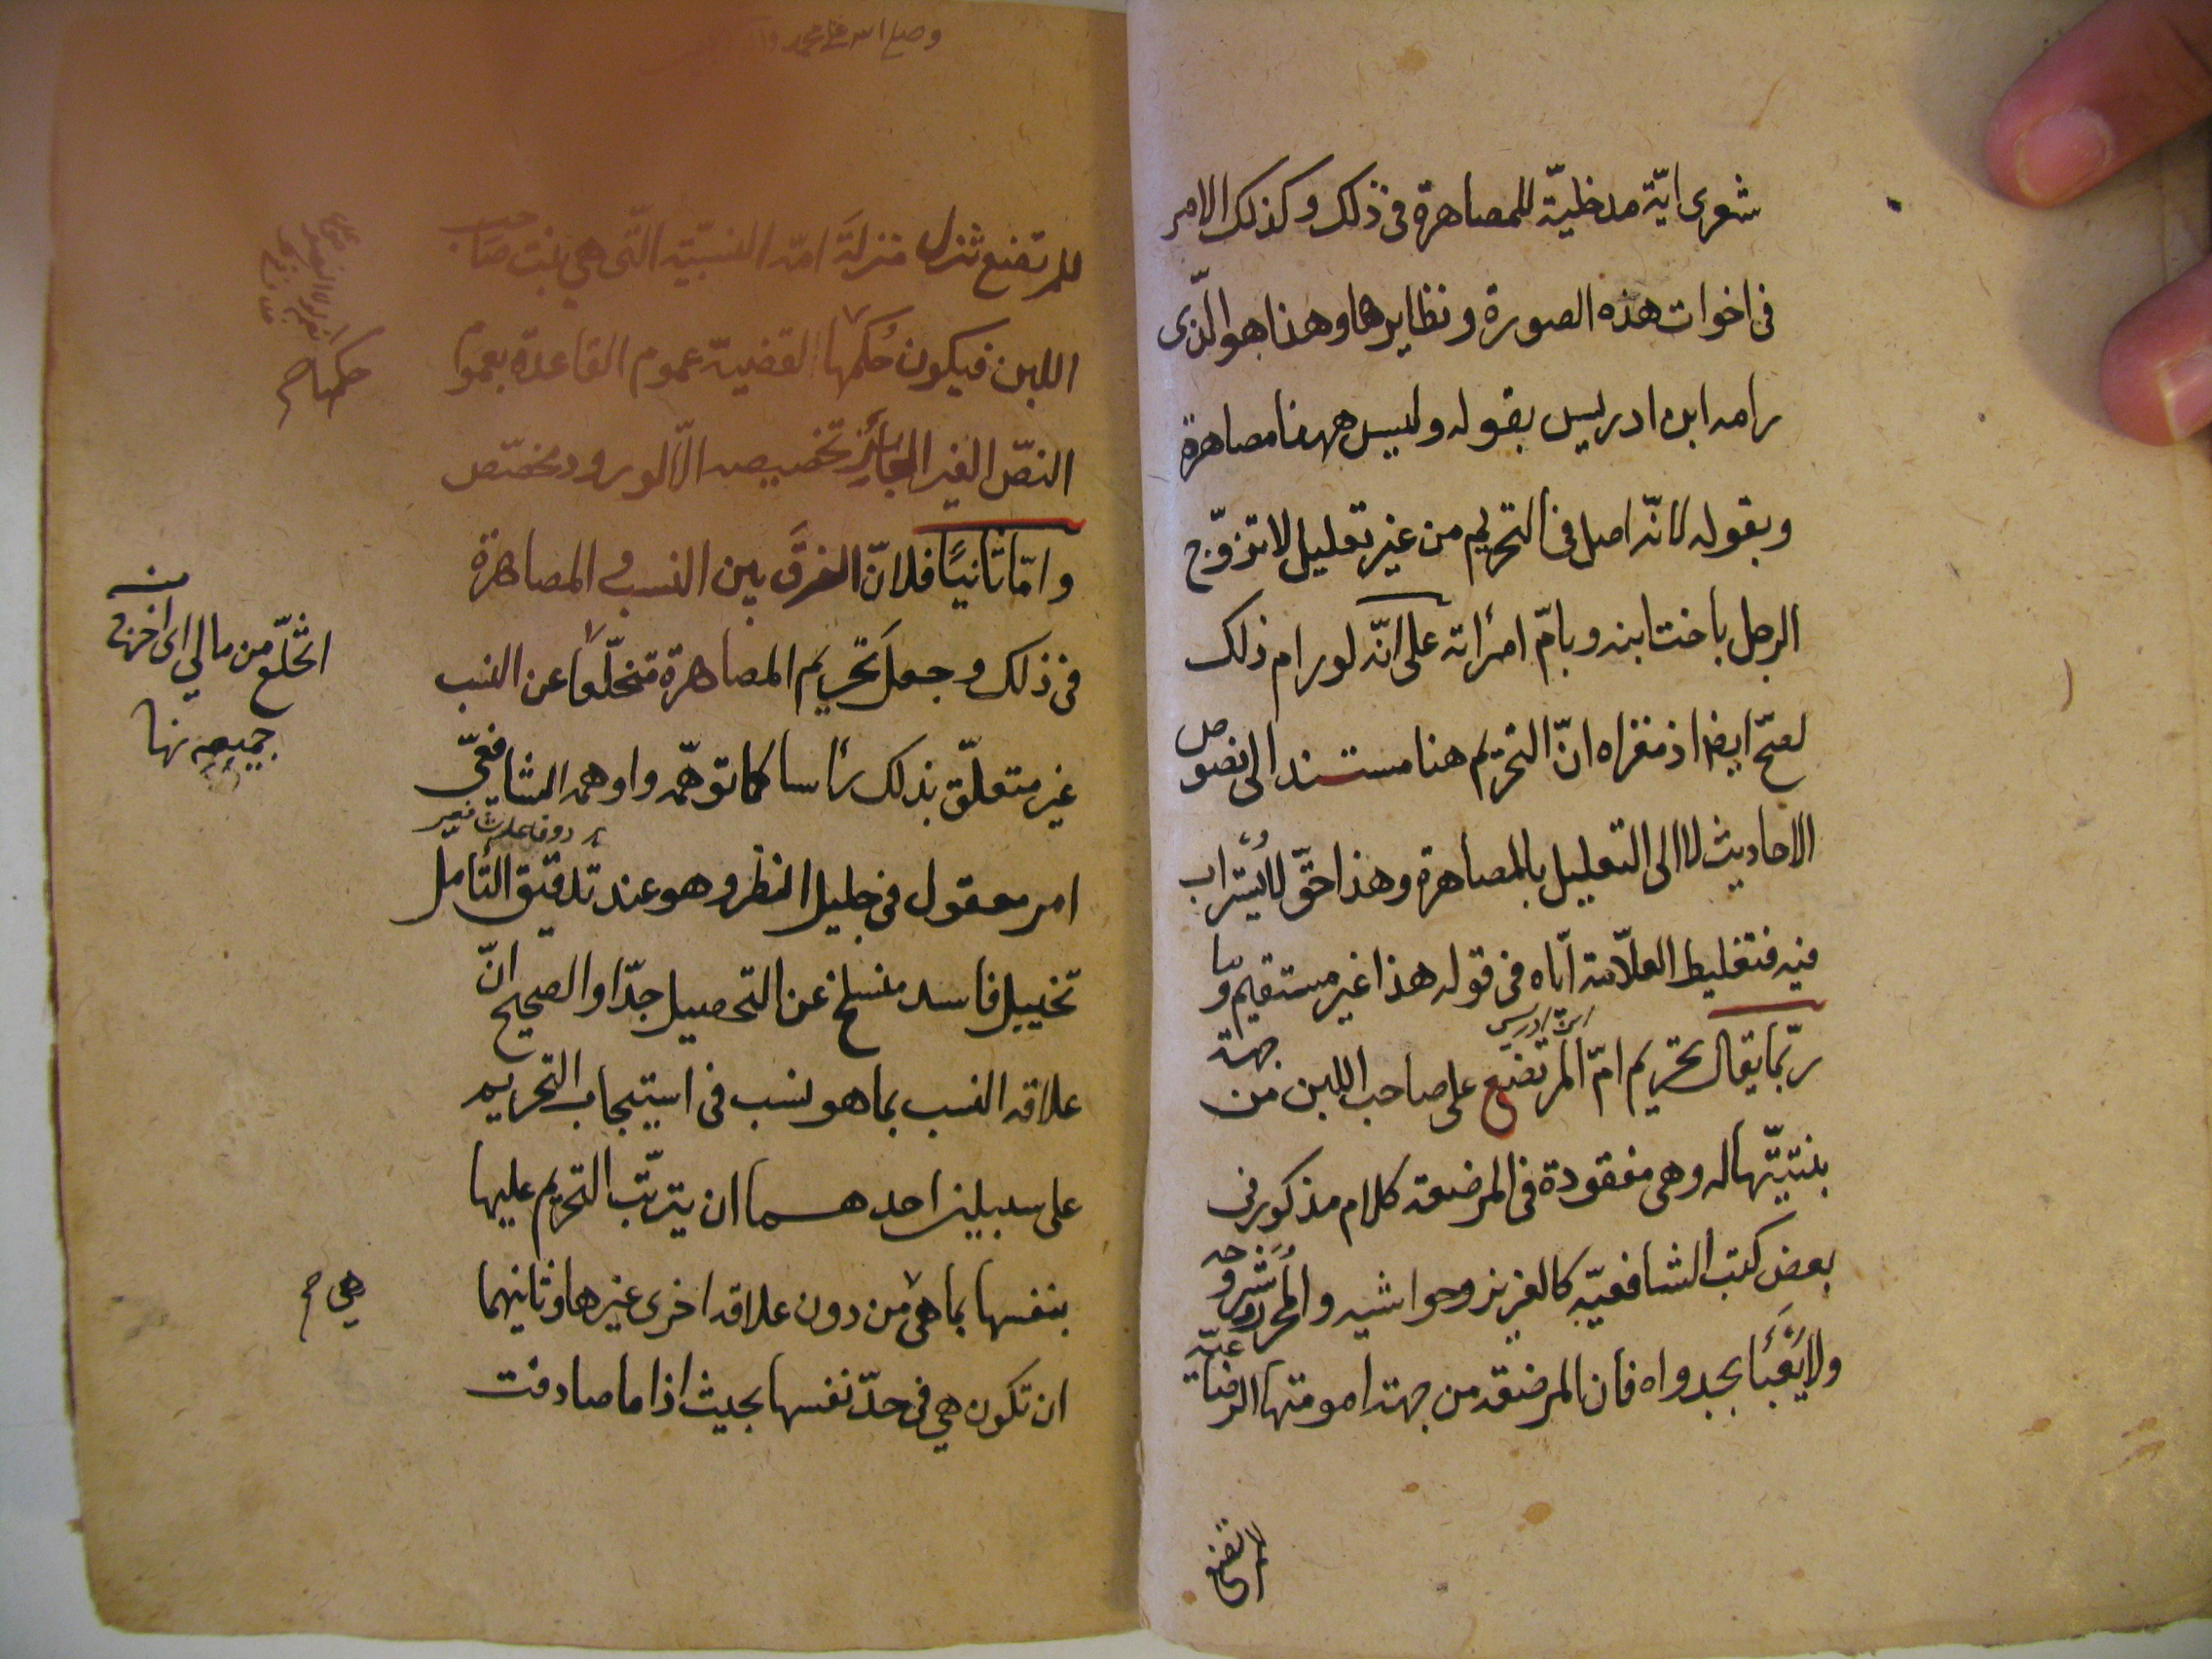 شعرى ايّة مدخليّة للمصاهرة فى ذلك وكذلك الامر
فى اخوات هذه الصورة ونظايرها وهذا هو الّذى
رامه ابن ادريس بقوله وليس ههنا مصاهرة
وبقوله لانّه اصل فى التحريم من غير تعليل لا تزوّج
الرجل بأخت ابنه وبامّ امرأته على انّه لو رام ذلك
لصحّ ايضا اذ مغزاه انّ التحريم هنا مستند الى نصوص
الاحاديث لا الى التعليل بالمصاهرة وهذا حقّ لا يُستراب
فيه فتغليط العلّامة ايّاه فى قوله هذا غير مستقيم وما
ابن ادريس
ربّما يقال بتحريم امّ المرتضع على صاحب اللبن من جهة
بنتيّتها له وهى مفقودة فى المرضعة كلام مذكور فى
بعض كتب الشافعيّة كالعزيز وحواشيه والمحرر وشروحه
ولا يُعْبَأ بجدواه فان المرضعة من جهة امومتها الرضاعيّة
للمرتضع
وصلى الله على محمد
للمرتضع تنزل منزلة امّه النسبيّة الّتى هى بنت صاحب
اللبن فيكون حُكمها القضية عموم القاعدة بعموم
حكمها ح
النصّ الغير الجائز تخصيصه الّا لورود مخصّص
وامّا ثانيًا فلانّ الفرق بين النسب و المصاهرة
فى ذلك وجعل تحريم المصاهرة متخلّعا عن النسب
انخلّع من مالي اى اخرج منه
جميعه
غير متعلّق بذلك رأسا كما توهّمه واوهمه الشافعيّ
امر معقول فى جليل النظر وهو عند تدقيق التأمل
تخييل فاسد منسلخ عن التحصيل جدّا والصحيح انّ
علاقه النسب بما هو نسب فى استيجاب التحريم
على سبيلين احدهما ان يترتّب التحريم عليها
بنفسها بما هى من دون علاقه اخرى غيرها وثانيهما
هى ح
ان تكون هى فى حدّ نفسها بحيث اذا ما صادفت